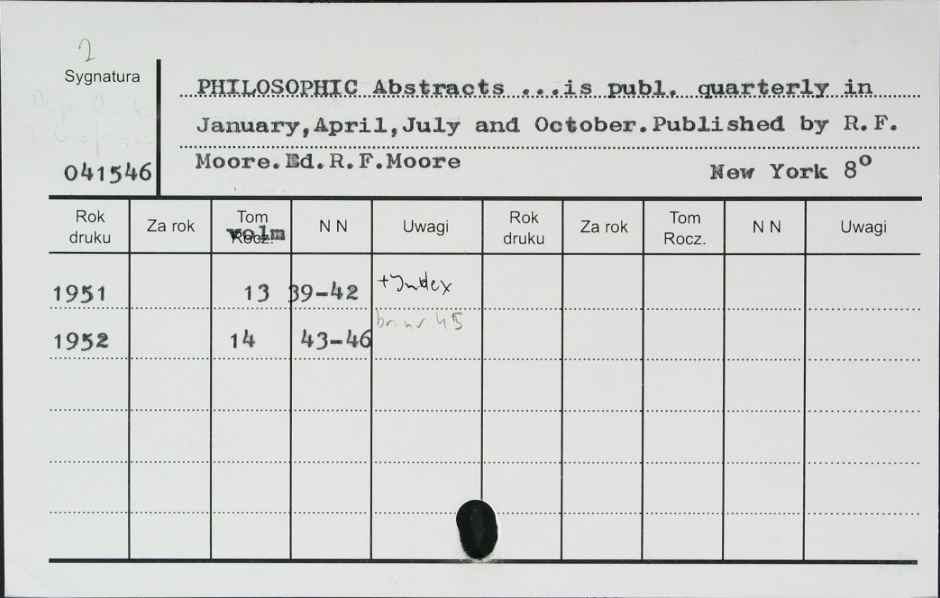 2
Sygnatura
PHILOSOPHIC Abstracts ...is publ. quarterly in
January,April,July and October.Published by R.F.
Moore.Ed.R.F.Moore
041546
New York 8º
Rok druku Za rok Tom Rocz. volm N N Uwagi Rok druku Za rok Tom Rocz. N N Uwagi
1951 13 39-42 +Index
br nr 45
1952 14 43-46